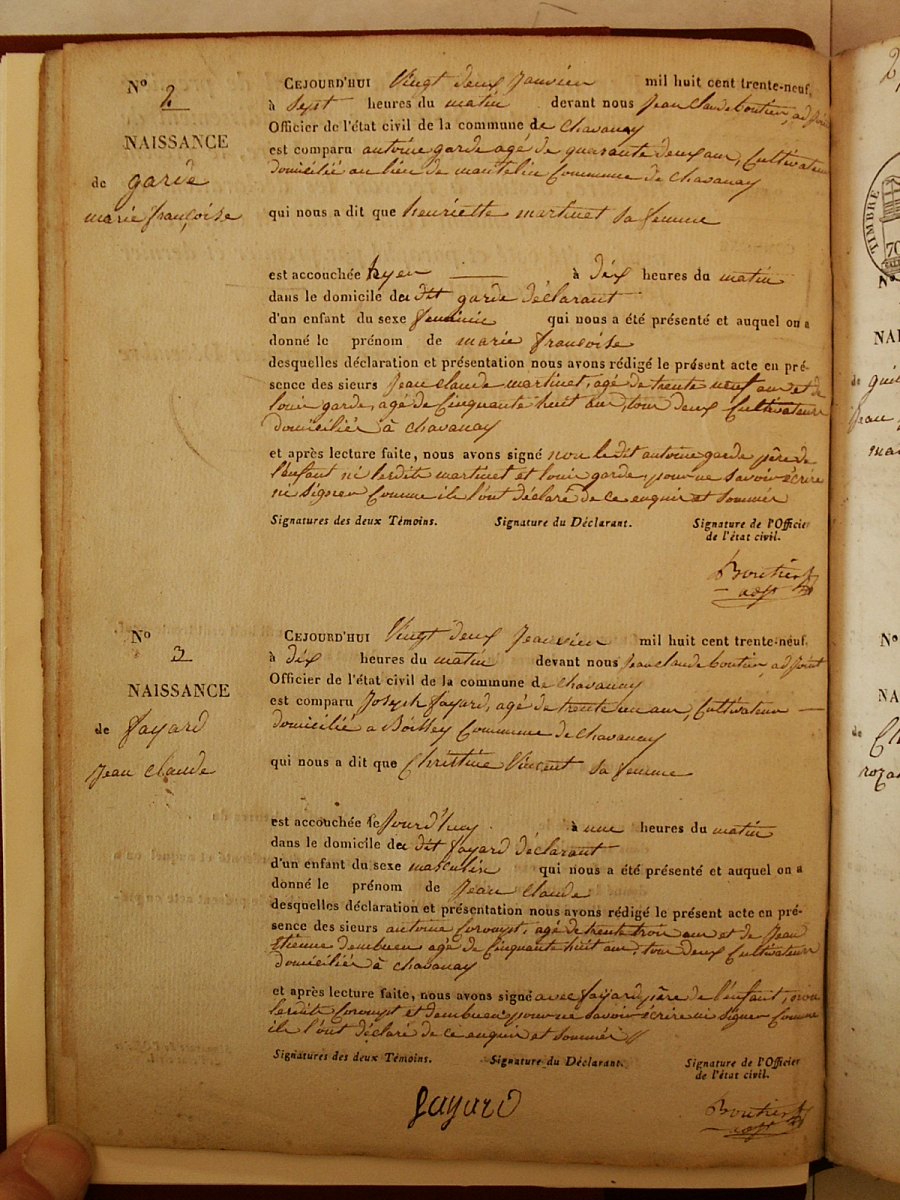 Nº
2
NAISSANCE
de garde
marie françoise
CEJOURD'HUI Vingt deux Janvier mil huit cent trente-neuf,
à Sept heures du matin devant nous Jean Claude boutier, adjoint
Officier de l'état civil de la commune de Chavanay
est comparu antoine garde agé de quarante deux ans, Cultivateur
domicilié au lieu de mantelin Commune de Chavanay
qui nous a dit que henriette martinet sa femme
est accouchée hyer à dix heures du matin
dans le domicile du dit garde déclarant
d'un enfant du sexe feminin qui nous a été présenté et auquel on a
donné le prénom de marie françoise
desquelles déclaration et présentation nous avons rédigé le présent acte en pré-
sence des sieurs Jean Claude martinet, agé de trente neuf ans et de
louis garde, agé de Cinquante huit ans, tous deux Cultivateurs
domiciliés à Chavanay
et après lecture faite, nous avons signé non le dit antoine garde père de
l'enfant ni lesdits martinet et louis garde, pour ne savoir écrire
ni signer Comme ils l'ont déclaré de ce enquis et sommés
Signatures des deux Témoins. Signature du Déclarant. Signature de l'Officier
de l'état civil.
Boutier
adjt
Nº
3
NAISSANCE
de fayard
Jean Claude
CEJOURD'HUI Vingt deux Jeanvier mil huit cent trente-neuf
à dix heures du matin devant nous Jean Claude boutier, adjoint
Officier de l'état civil de la commune de Chavanay
est comparu Joseph fayard, agé de trente un ans, Cultivateur
domicilié a Boissey Commune de Chavanay
qui nous a dit que Christine Vincent sa femme
est accouchée le Jourd'huy à une heures du matin
dans le domicile du dit fayard déclarant
d'un enfant du sexe masculin qui nous a été présenté et auquel on a
donné le prénom de Jean Claude
desquelles déclaration et présentation nous avons rédigé le présent acte en pré-
sence des sieurs antoine Corompt, agé de trente trois ans et de Jean
Etienne dembuen agé de Cinquante huit ans, tous deux Cultivateurs
domiciliés à Chavanay
et après lecture faite, nous avons signé avec fayard père de l'enfant, non
lesdits Corompt et dembuen pour ne savoir écrire ni signer Comme
ils l'ont déclaré de ce enquis et sommés
Signatures des deux Témoins. Signature du Déclarant. Signature de l'Officier
de l'état civil.
fayard
Boutier
adjt
TIMBRE
70
Nº
NAI
de
Jean
Nº
NA
de